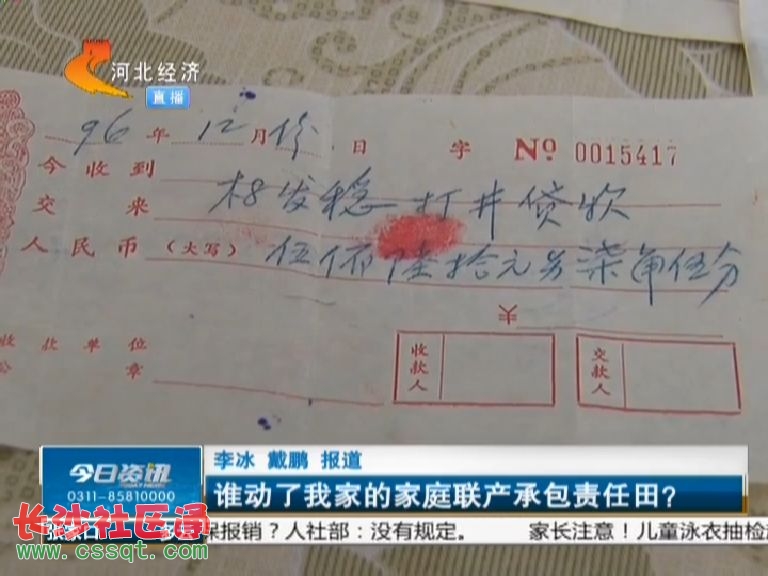 河北经济
直播
96年12月份日 字 Nº 0015417
今收到
交来 杨发稳 打井贷款
人民币(大写) 伍佰陆拾元另柒角伍分
¥
收款单位
公章
收款人
交款人
今日资讯
0311-85810000
李冰 戴鹏 报道
谁动了我家的家庭联产承包责任田?
保报销?人社部:没有规定。 家长注意!儿童泳衣抽检
长沙社区通
www.cssqt.com